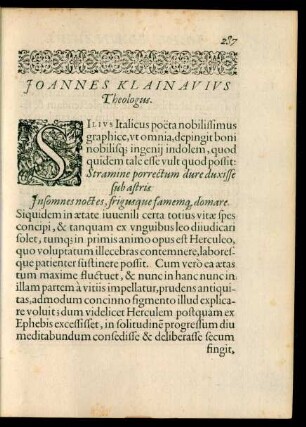 287
JOANNES KLAINAVIVS
Theologus.
SILIVS Italicus poëta nobilissimus
graphice, vt omnia, depingit boni
nobilisq; ingenij indolem, quod
quidem tale esse vult quod possit:
Stramine porrectum dure duxisse
sub astris
Insomnes noctes, frigusque famemq, domare.
Siquidem in ætate iuuenili certa totius vitæ spes
concipi, & tanquam ex vnguibus leo diiudicari
solet, tumq; in primis animo opus est Herculeo,
quo voluptatum illecebras contemnere, labores-
que patienter sustinere possit. Cum verò ea ætas
tum maxime fluctuet, & nunc in hanc nunc in
illam partem à vitiis impellatur, prudens antiqui-
tas, admodum concinno figmento illud explica-
re voluit: dum videlicet Herculem postquam ex
Ephebis excessisset, in solitudinẽ progressum diu
meditabundum consedisse & deliberasse secum
fingit,